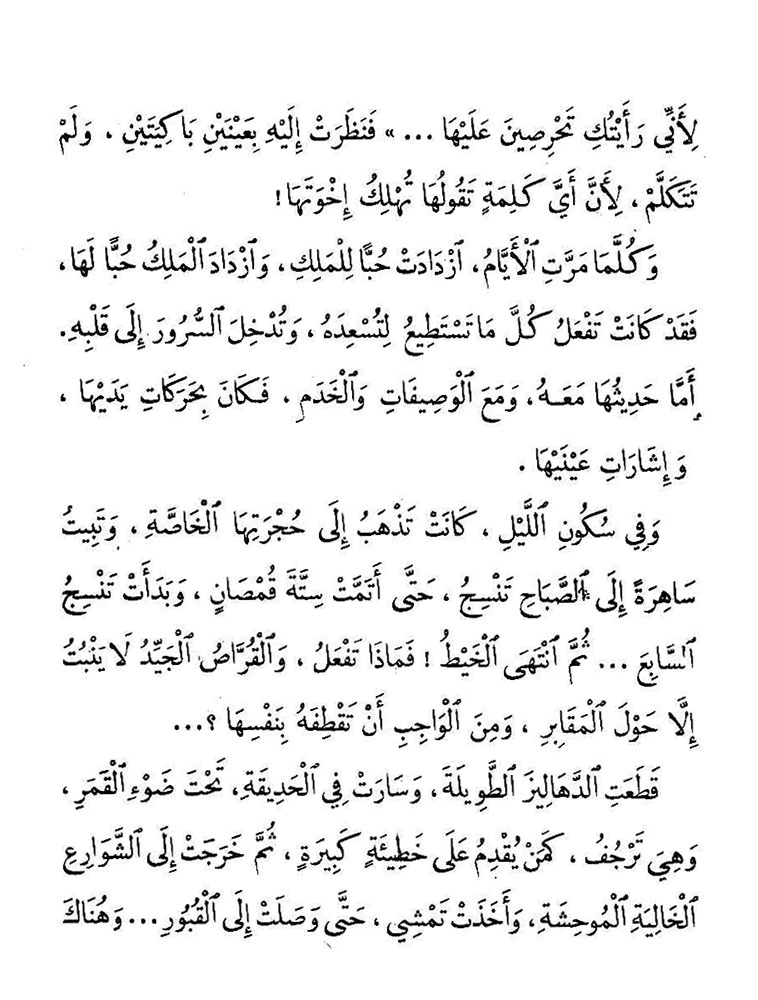 لِأَنِّي رَأَيْتُكِ تَحْرِصِينَ عَلَيْهَا ... » فَنَظَرَتْ إِلَيْهِ بِعَيْنَيْنِ بَاكِيَتَيْنِ ، وَلَمْ
تَتَكَلَّمْ ، لِأَنَّ أَيَّ كَلِمَةٍ تَقُولُهَا تُهْلِكُ إِخْوَتَهَا !
وَكُلَّمَا مَرَّتِ ٱلْأَيَّامُ ، ٱزْدَادَتْ حُبًّا لِلْمَلِكِ ، وَٱزْدَادَ ٱلْمَلِكُ حُبًّا لَهَا ،
فَقَدْ كَانَتْ تَفْعَلُ كُلَّ مَا تَسْتَطِيعُ لِتُسْعِدَهُ ، وَتُدْخِلَ ٱلسُّرُورَ إِلَى قَلْبِهِ .
أَمَّا حَدِيثُهَا مَعَهُ ، وَمَعَ ٱلْوَصِيفَاتِ وَٱلْخَدَمِ ، فَكَانَ بِحَرَكَاتِ يَدَيْهَا ،
وَإِشَارَاتِ عَيْنَيْهَا .
وَفِي سُكُونِ ٱللَّيْلِ ، كَانَتْ تَذْهَبُ إِلَى حُجْرَتِهَا ٱلْخَاصَّةِ ، وَتَبِيتُ
سَاهِرَةً إِلَى ٱلصَّبَاحِ تَنْسِجُ ، حَتَّى أَتَمَّتْ سِتَّةَ قُمْصَانٍ ، وَبَدَأَتْ تَنْسِجُ
ٱلسَّابِعَ ... ثُمَّ ٱنْتَهَى ٱلْخَيْطُ ! فَمَاذَا تَفْعَلُ ، وَٱلْقُرَّاصُ ٱلْجَيِّدُ لَا يَنْبُتُ
إِلَّا حَوْلَ ٱلْمَقَابِرِ ، وَمِنَ ٱلْوَاجِبِ أَنْ تَقْطِفَهُ بِنَفْسِهَا ؟...
قَطَعَتِ ٱلدَّهَالِيزَ ٱلطَّوِيلَةَ ، وَسَارَتْ فِي ٱلْحَدِيقَةِ ، تَحْتَ ضَوْءِ ٱلْقَمَرِ ،
وَهِيَ تَرْجُفُ ، كَمَنْ يُقْدِمُ عَلَى خَطِيئَةٍ كَبِيرَةٍ ، ثُمَّ خَرَجَتْ إِلَى ٱلشَّوَارِعِ
ٱلْخَالِيَةِ ٱلْمُوحِشَةِ ، وَأَخَذَتْ تَمْشِي ، حَتَّى وَصَلَتْ إِلَى ٱلْقُبُورِ ... وَهُنَاكَ